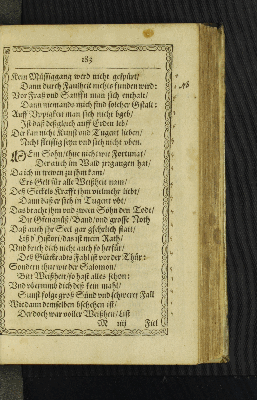 183
Kein Müssiggang werd nicht gespürt/
Dann durch Faulheit nichts funden wird:
Vor Fraß vnd Sauffn man sich enthalt/
Dann niemands mich find solcher Gstalt:
Auff Vppigkeit man sich nicht bgeb/
Ist daß deßgleich auff Erden leb/
Der kan nicht Kunst vnd Tugent lieben/
Nicht fleissig seyn vnd sich nicht üben.
Ein Sohn/ thue nicht wie Fortunat/
Der auch im Wald gegangen hat/
Da ich in treuen zu ihm kam/
Ers Gelt für alle Weißheit nam/
Deß Seckels Krafft ihm vielmehr liebt/
Dann daß er sich in Tugent übt/
Das bracht ihm vnd zween Söhn den Todt/
Die Gfencknuß Band/ vnd grosse Noth
Daß auch ihr Seel gar gfehrlich statt/
Liß d Histori/ das ist mein Rath/
Vnd huch dich nicht auch so herfür/
Deß Glücks Fahl ist vor der Thür:
Sondern thue wie der Salomon/
Bitt Weißheit/ so hast alles schon:
Vnd vbernimb dich deß kein mahl/
Sunst folgt groß Sünd vnd schwerer Fall
Wie dann demselben bschehen ist/
Der doch war voller Weißheit/ List
M iiij Fiel